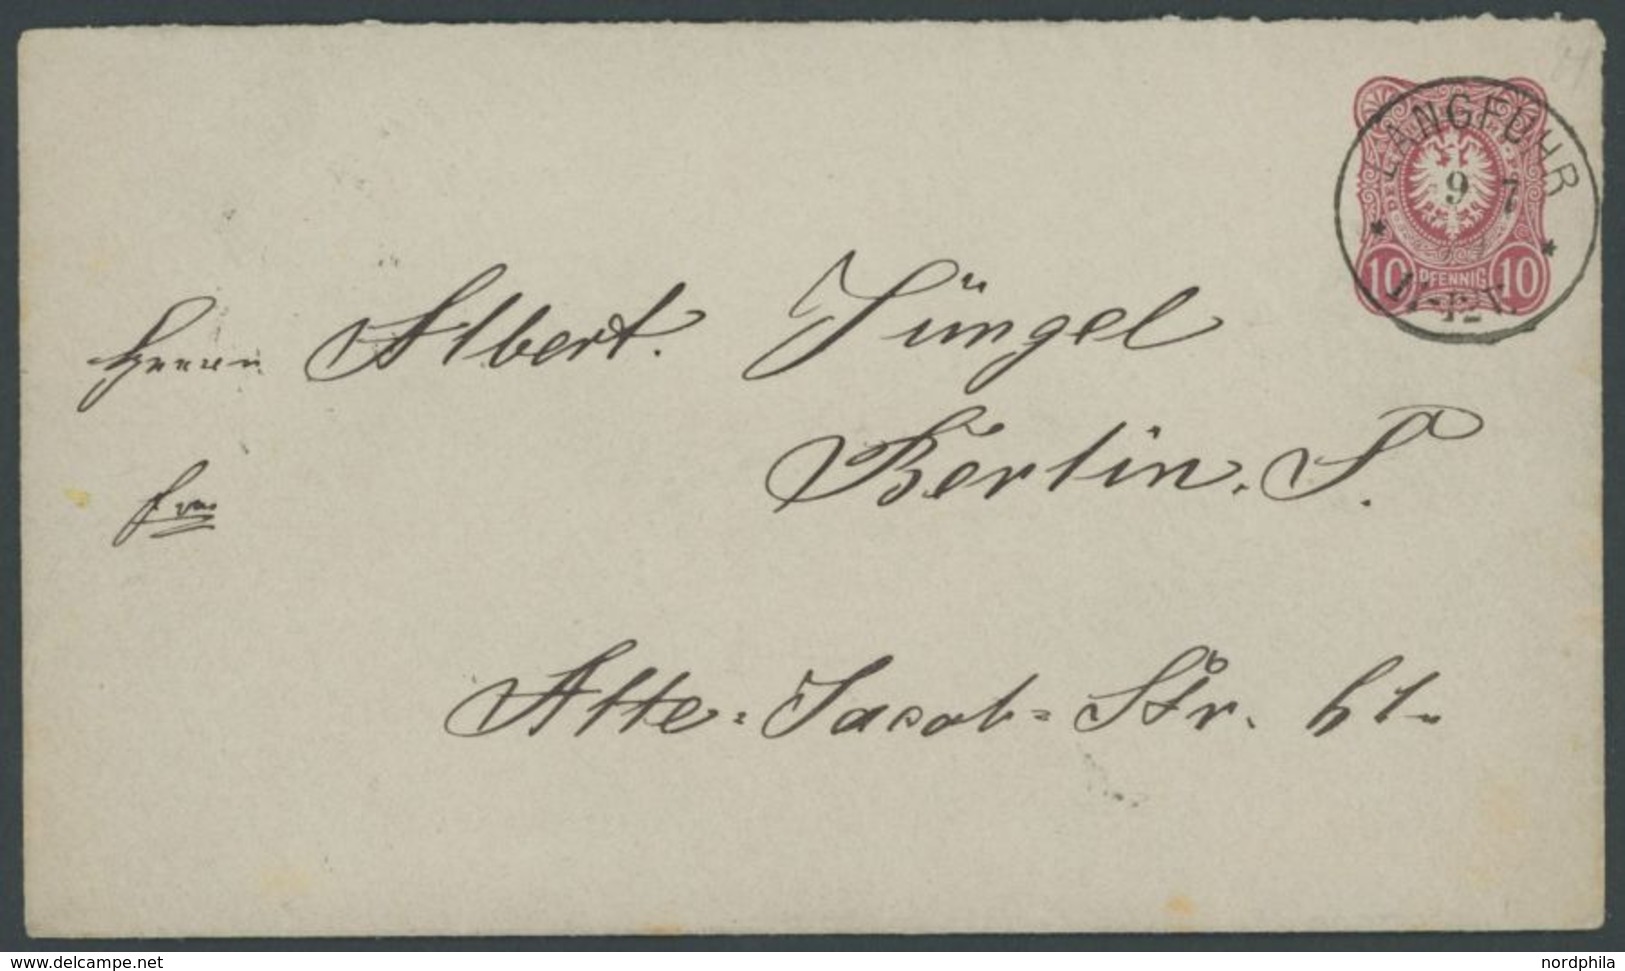 LANGFUHR
9 7
10 PFENNIG 10
Herrn Albert Jüngel
Berlin. S.
frei
Alte-Jacob-Str.
www.delcampe.net
nordphila